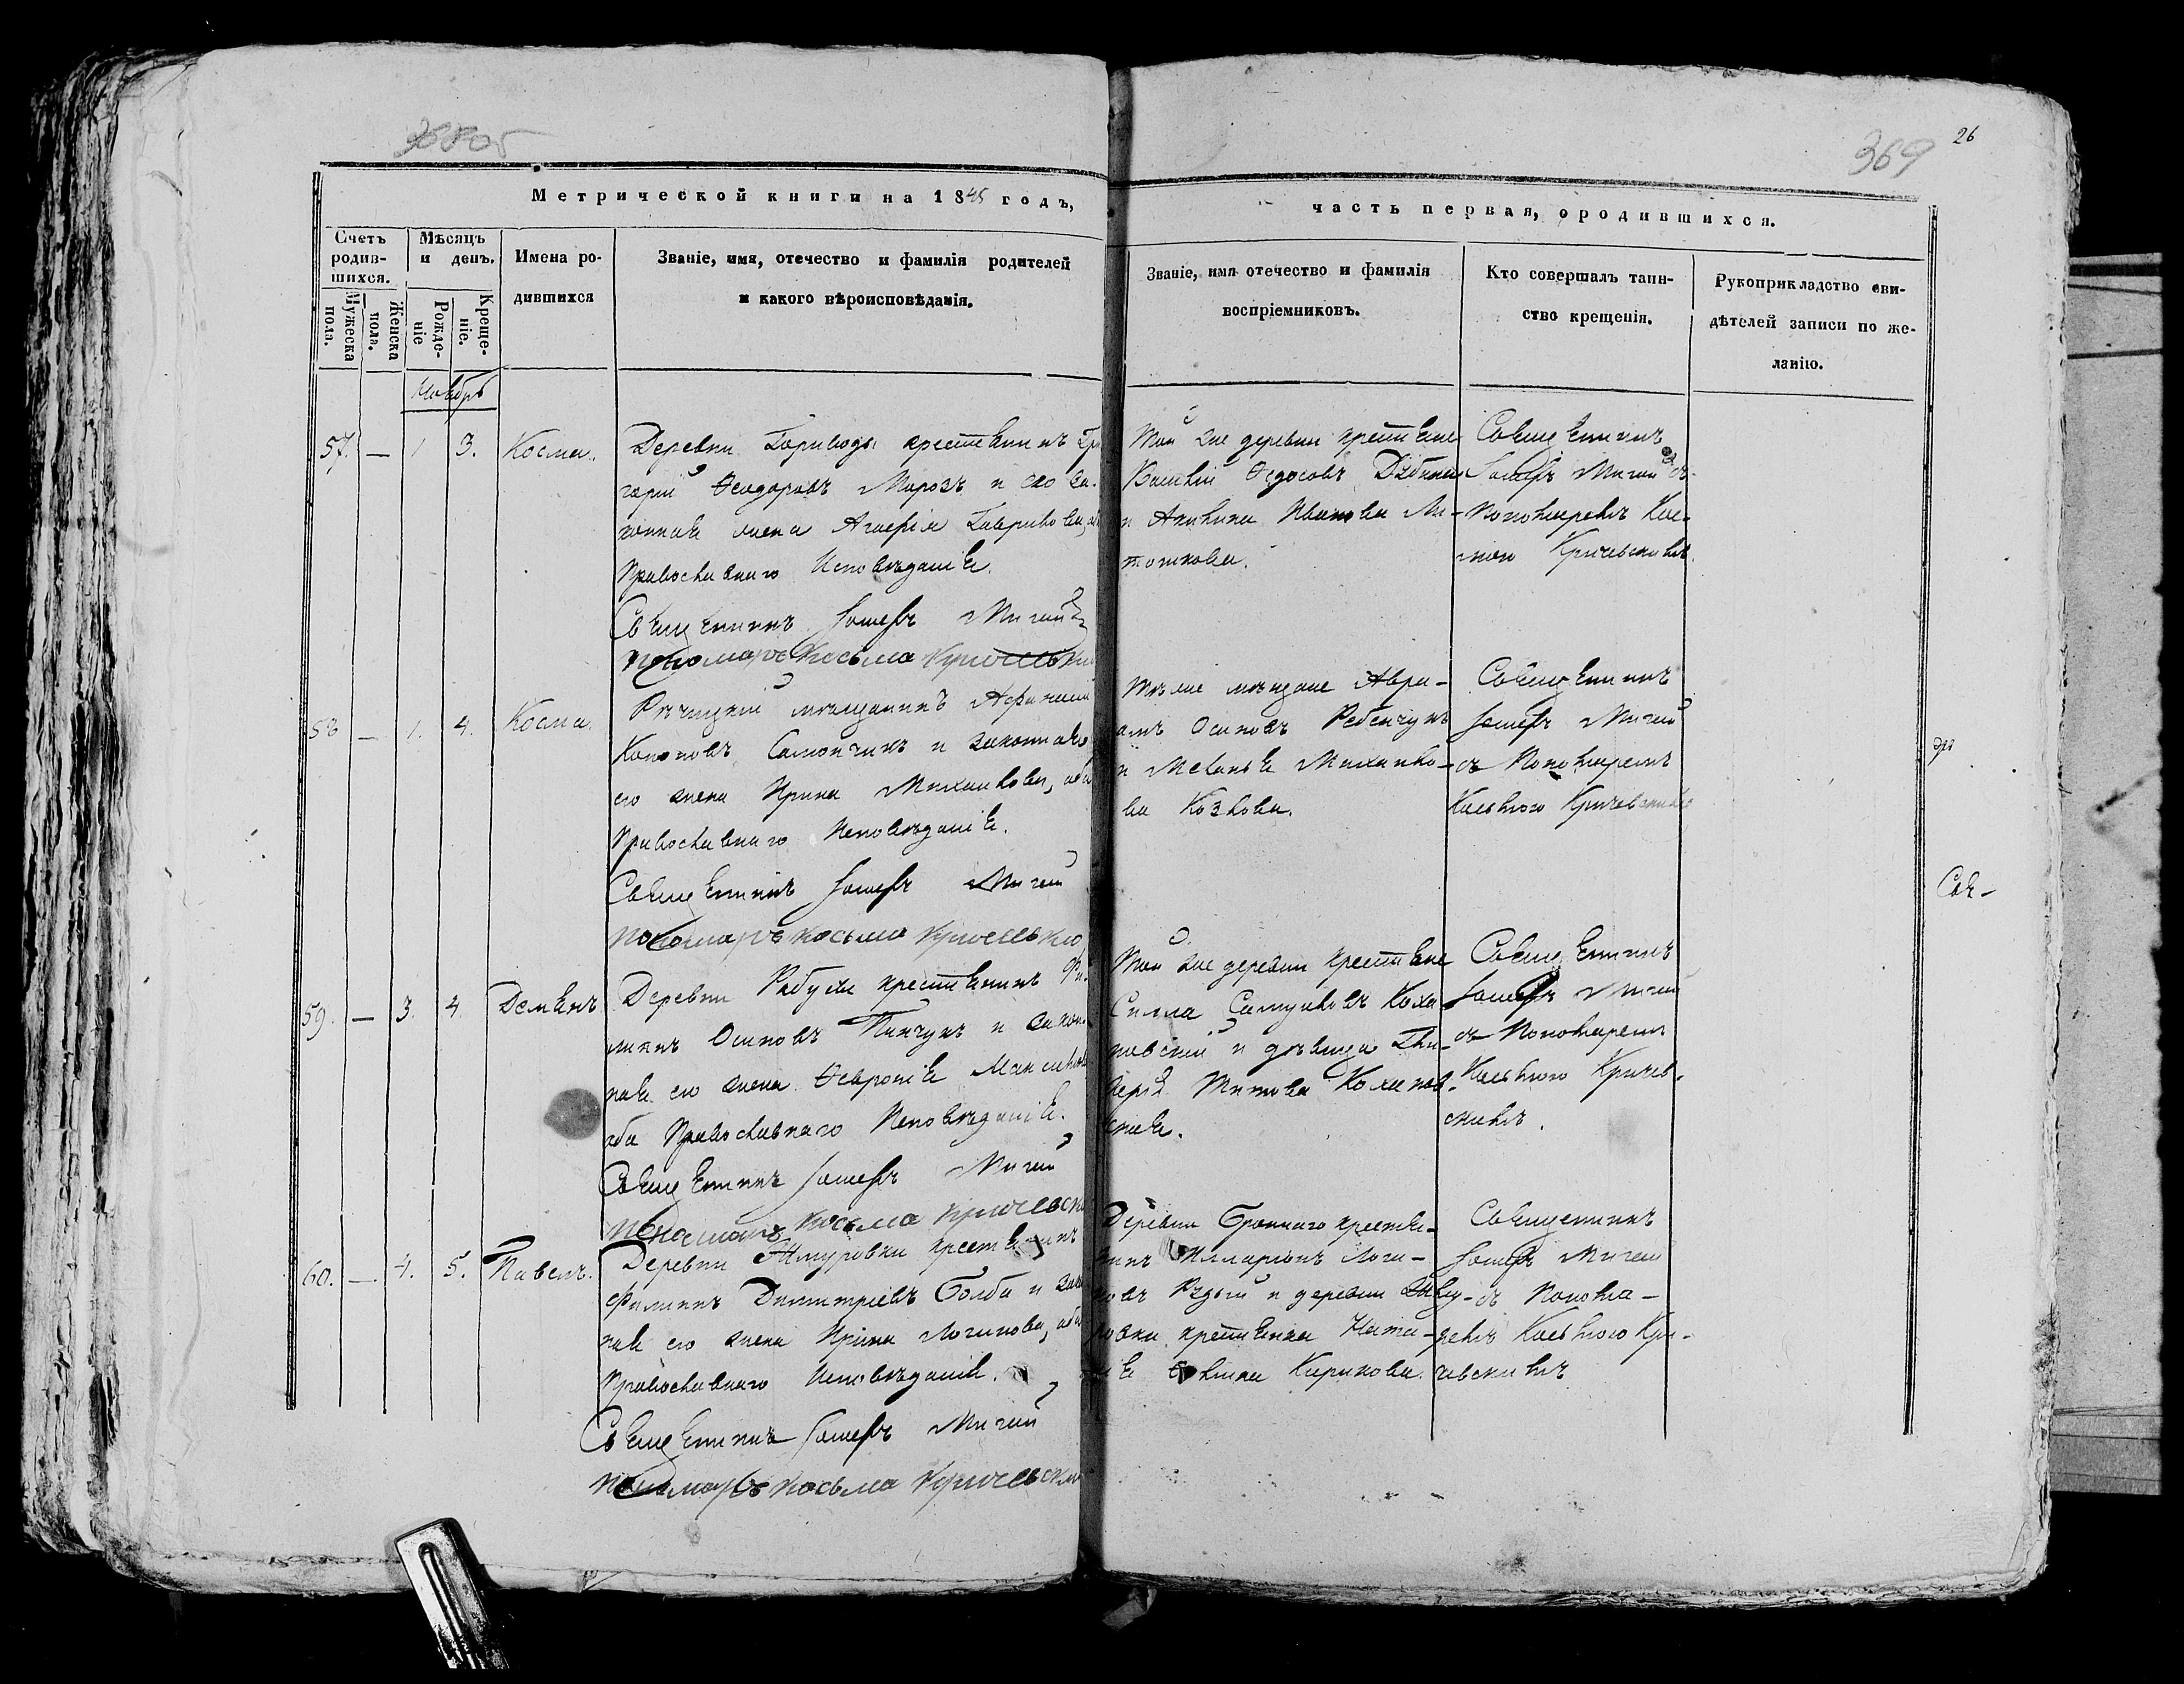 369
26
Метрической книги на 1845 годъ,
часть первая, о родившихся.
Счетъ родив-
шихся.
Мужеска пола.
Женска пола.
Мѣсяцъ и день.
Рожде-
ніе
Креще-
ніе.
Имена ро-
дившихся
Званіе, имя, отечество и фамилія родителей
и какого вѣроисповѣданія.
Званіе, имя отечество и фамилія
воспріемниковъ.
Кто совершалъ таин-
ство крещенія.
Рукоприкладство сви-
дѣтелей записи по же-
ланію.
Ноябрь
57. — 1 3. Косма.
Деревни крестьянинъ Гри
горій Ѳеодоровъ Морозъ и его за-
конная жена Агафія Гаврилова,
Православнаго Исповѣданія.
Священникъ Іосифъ Мигай
Пономарь Косьма Кричевскі
Той же деревни крестьяне
Василій Ѳедосовъ
и Акилина Иванова Ма-
Священникъ
Іосифъ Мигай съ
Пономаремъ Кос-
мою Кричевскимъ.
58 — 1. 4. Косма.
Рѣчицкій мѣщанинъ Афанасій
Кононовъ Самончикъ и законная
его жена Ирина Михайлова, оба
Православнаго Исповѣданія.
Священникъ Іосифъ Мигай
Пономарь Косьма Кричевскі
мѣщане Авра-
амъ Осиповъ Ребенчукъ
и Меланья Михайло-
ва Козлова.
Священникъ
Іосифъ Мигай
съ Пономаремъ
Касьмою Кричевскимъ
59. — 3. 4. Демьянъ
Деревни крестьянинъ Фи-
липъ Осиповъ Пинчукъ и закон
ная его жена Ѳевронія Максимова
оба Православнаго Исповѣданія.
Священникъ Іосифъ Мигай
Пономарь Косьма Кричевскі
Той же деревни крестьяне
Сила Самуиловъ Коха
новскій и дѣвица Гли-
керія Титова Коханов-
ская.
Священникъ
Іосифъ Мигай
съ Пономаремъ
Касьмою Кричев-
скимъ.
60. — 4. 5. Павелъ.
Деревни крестьянинъ
Филипъ Димитріевъ Болба и зако
ная его жена Ирина Логинова, оба
Православнаго Исповѣданія.
Священникъ Іосифъ Мигай
Пономарь Косьма Кричевскі
Деревни Броннаго крестья-
нинъ Иларіонъ Логи-
новъ и деревни
крестьянка Ната-
лія Кирикова.
Священникъ
Іосифъ Мигай
съ Понома-
ремъ Касьмою Кри-
чевскимъ